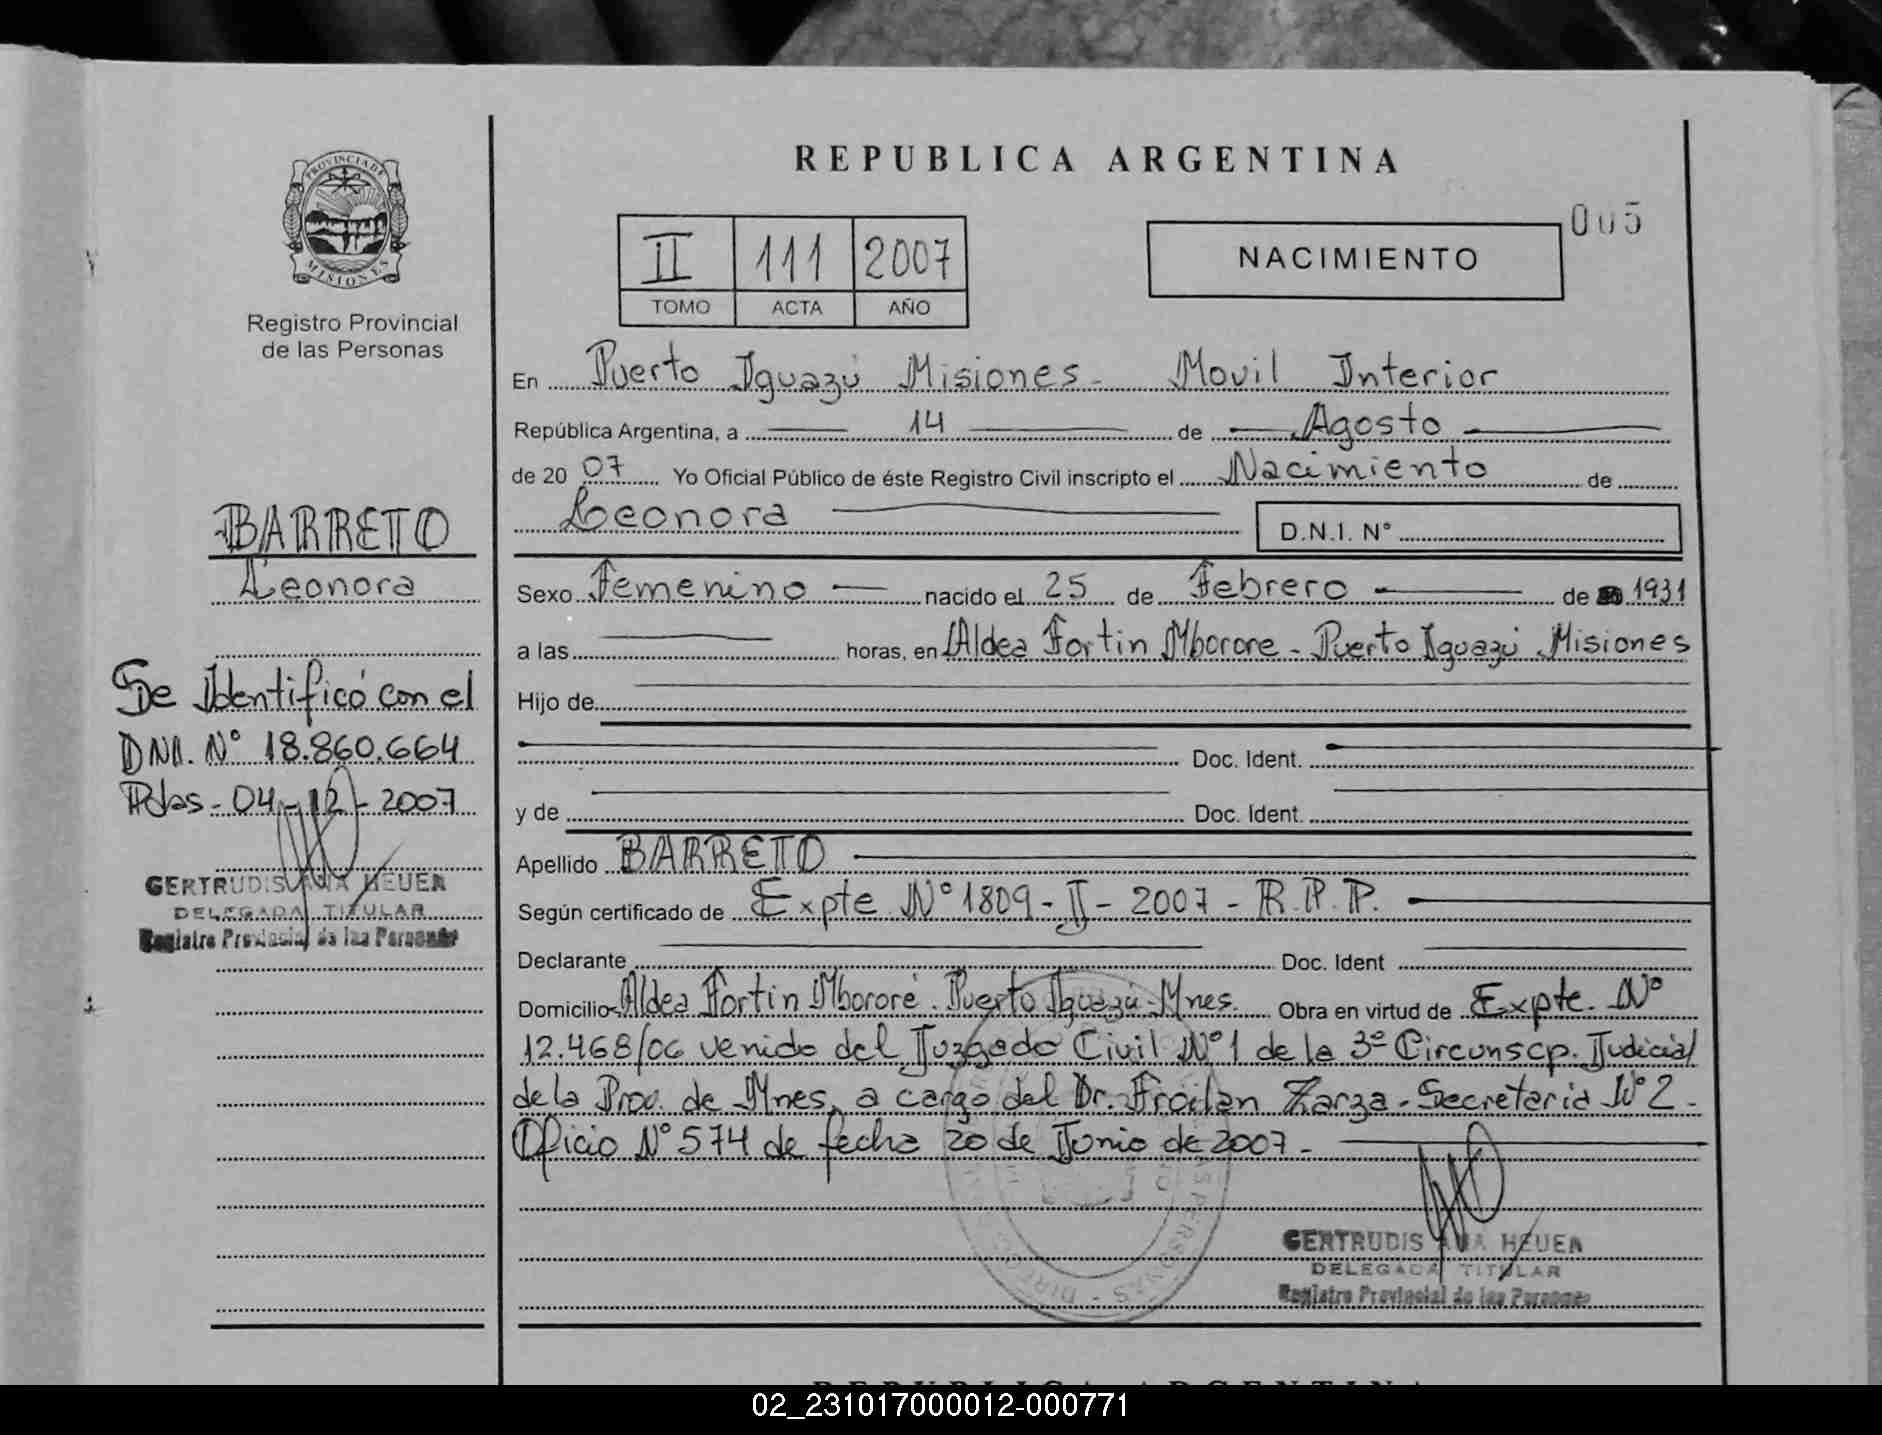 REPUBLICA ARGENTINA
005
PROVINCIA DE
MISIONES
Registro Provincial
de las Personas
II 111 2007
TOMO ACTA AÑO
NACIMIENTO
En Puerto Iguazú Misiones - Movil Interior
República Argentina, a 14 de Agosto
de 20 07 Yo Oficial Público de éste Registro Civil inscripto el Nacimiento de
Leonora D.N.I. N°
BARRETO
Leonora
Se Identificó con el
DNI. N° 18.860.664
Pdas - 04-12-2007
GERTRUDIS ANA HEUER
DELEGADA TITULAR
Registro Provincial de las Personas
Sexo Femenino nacido el 25 de Febrero de 1931
a las horas, en Aldea Fortin Mborore - Puerto Iguazú Misiones
Hijo de
Doc. Ident.
y de Doc. Ident.
Apellido BARRETO
Según certificado de Expte N° 1809 - I - 2007 - R.P.P.
Declarante Doc. Ident
Domicilio Aldea Fortin Mbororé. Puerto Iguazú - Mnes. Obra en virtud de Expte. N°
12.468/06 venido del Juzgado Civil N° 1 de la 3º Circunscp. Judicial
de la Prov. de Mnes, a cargo del Dr. Froilan Zarza - Secretaria N° 2 -
Oficio N° 574 de fecha 20 de Junio de 2007 -
GERTRUDIS ANA HEUER
DELEGADA TITULAR
Registro Provincial de las Personas
REPUBLICA ARGENTINA
02_231017000012-000771